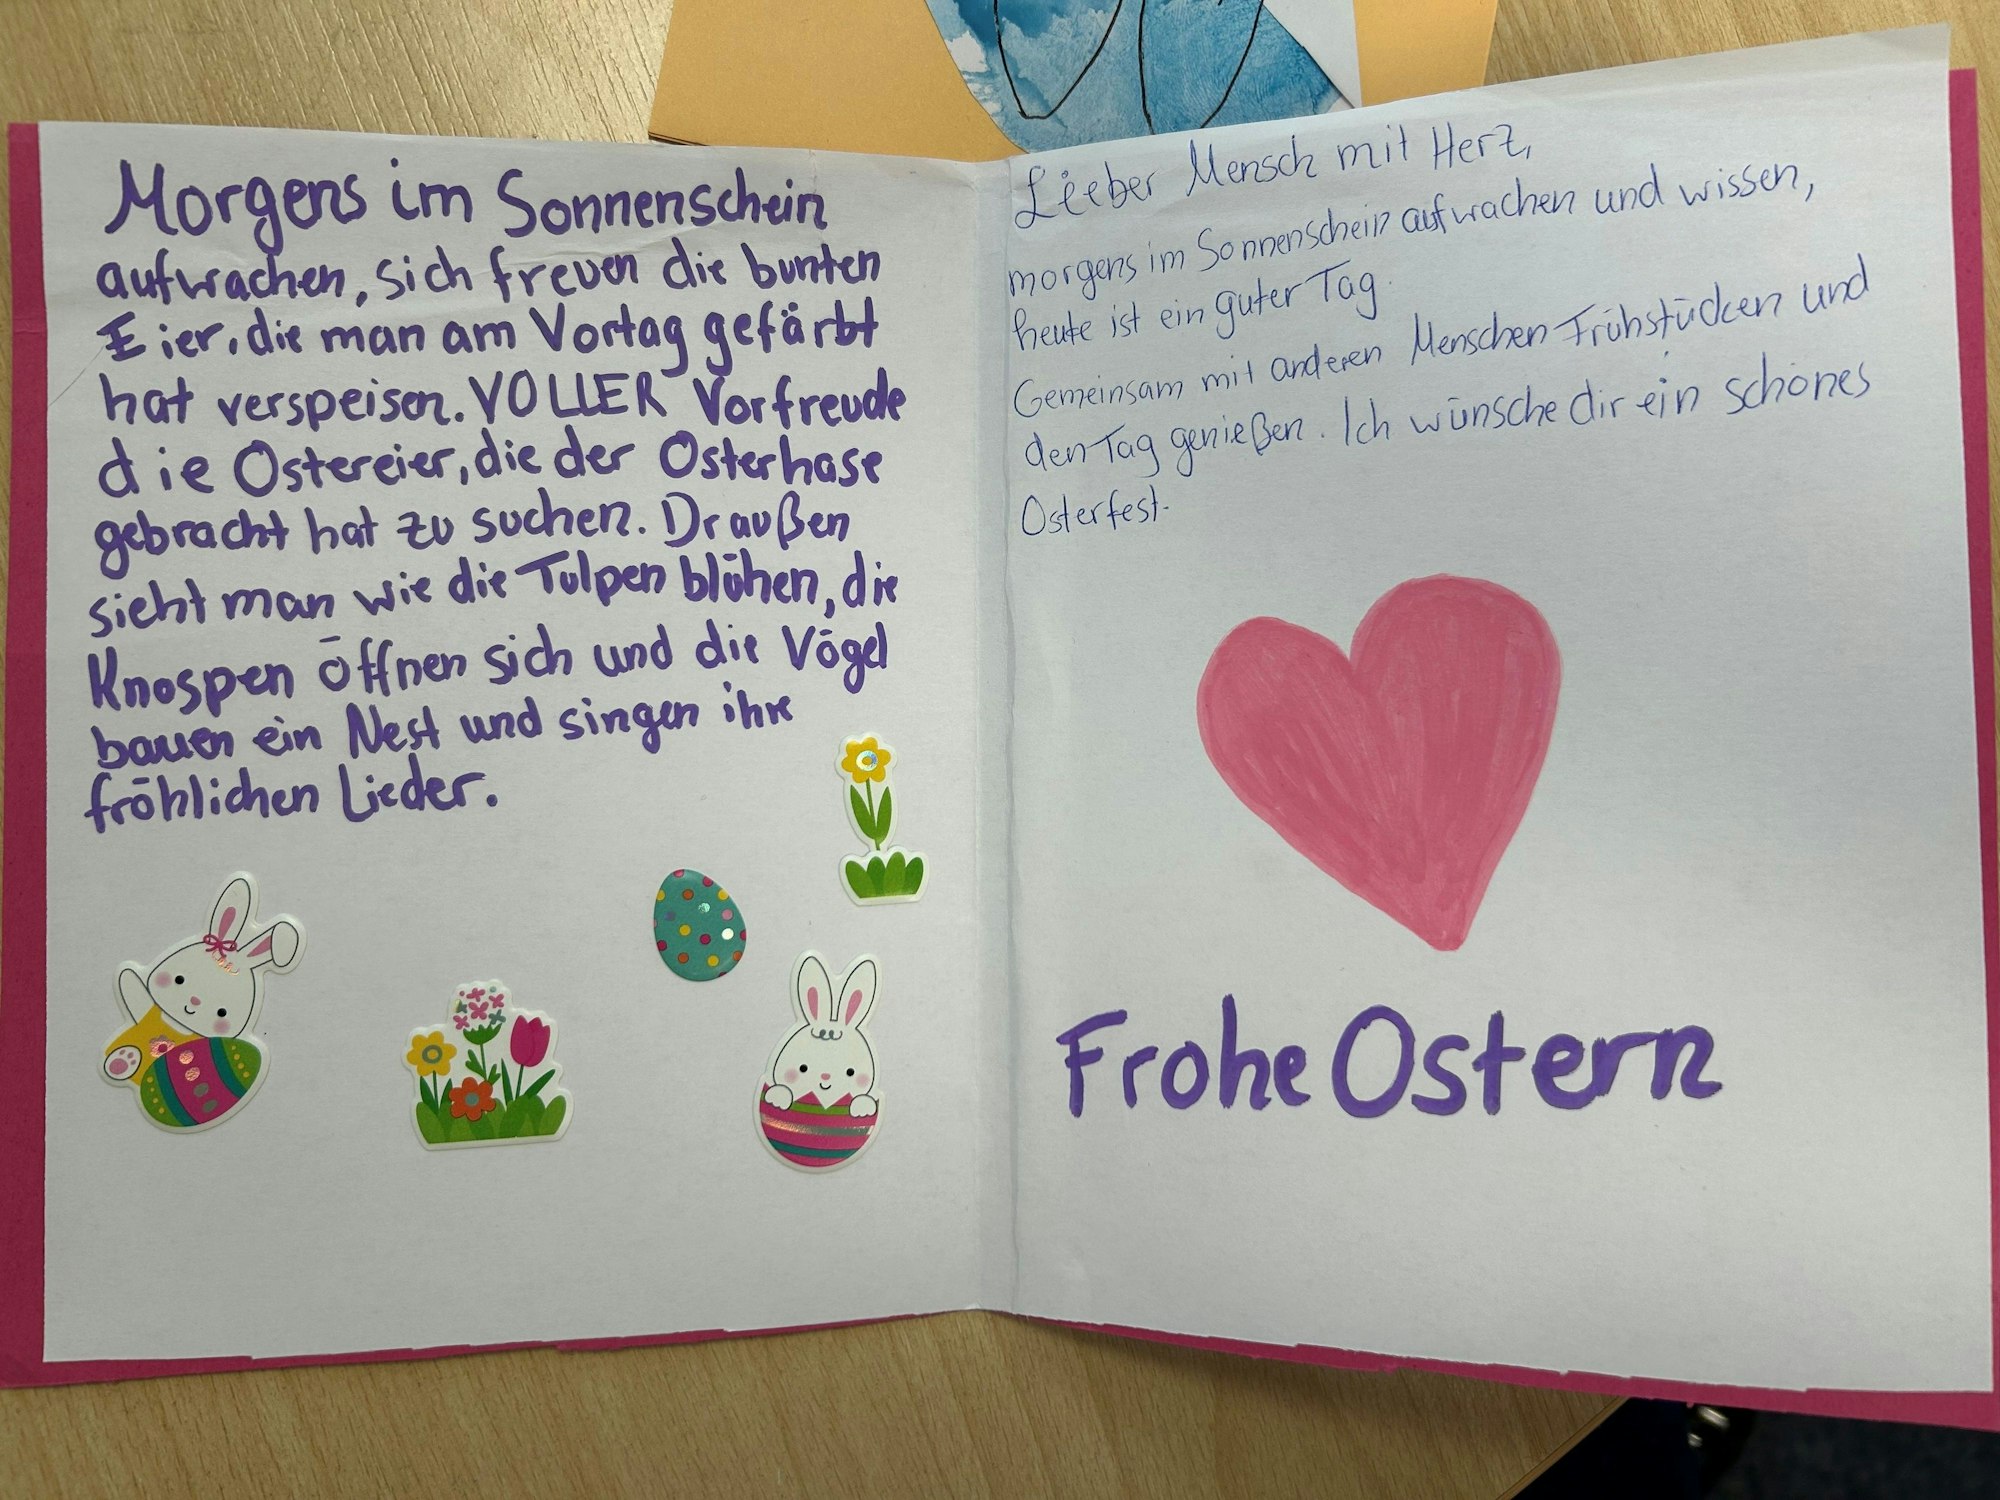 Morgens im Sonnenschein
aufwachen, sich freuen die bunten
Eier, die man am Vortag gefärbt
hat verspeisen. VOLLER Vorfreude
die Ostereier, die der Osterhase
gebracht hat zu suchen. Draußen
sieht man wie die Tulpen blühen, die
Knospen öffnen sich und die Vögel
bauen ein Nest und singen ihre
fröhlichen Lieder.
Lieber Mensch mit Herz,
morgens im Sonnenschein aufwachen und wissen,
heute ist ein guter Tag.
Gemeinsam mit anderen Menschen Frühstücken und
den Tag genießen. Ich wünsche dir ein schönes
Osterfest.
Frohe Ostern